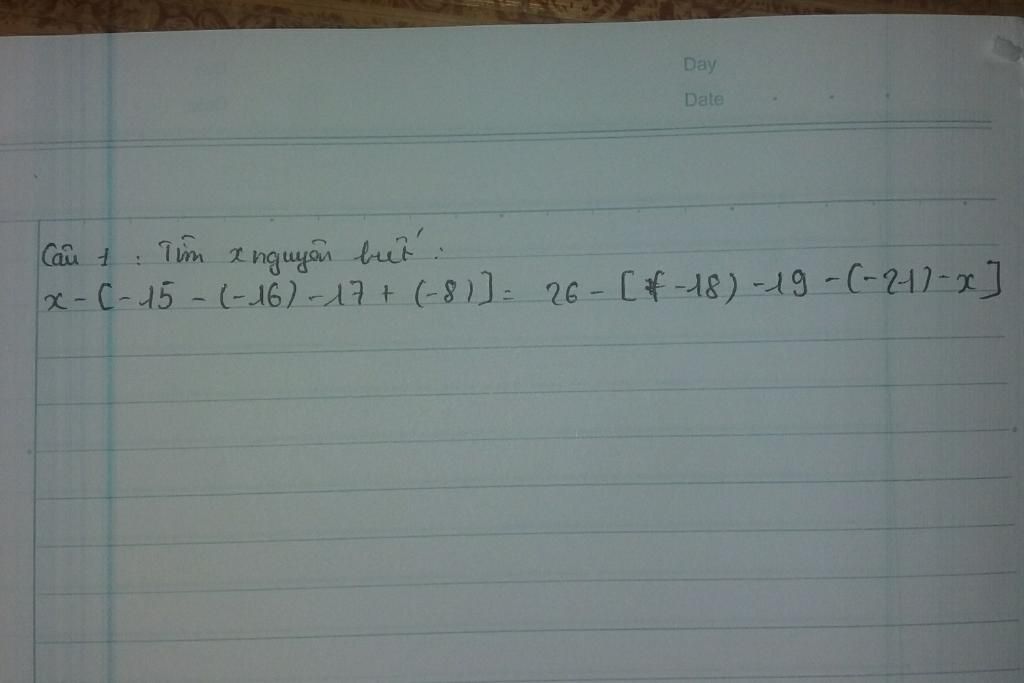 Day
Date
Câu 1 : Tìm x nguyên biết :
x - [ -15 - (-16) - 17 + (-8)] = 26 - [(-18) - 19 - (-21) - x]